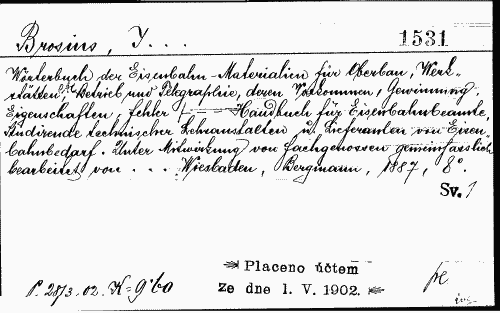 Brosius, J . . .
1531
Wörterbuch der Eisenbahn-Materialien für Oberbau, Werk-
stätten, Betrieb und Telegraphie, deren Vorkommen, Gewinnung,
Eigenschaften, Fehler Handbuch für Eisenbahnbeamte,
Studirende technischer Lehranstalten u. Lieferanten von Eisen-
bahnbedarf. Unter Mitwirkung von Fachgenossen gemeinfasslich
bearbeitet von . . . Wiesbaden, Bergmann, 1887, 8°.
Sv. 1
Placeno účtem
ze dne 1. V. 1902.
P. 287 3. 02. K = 9'60